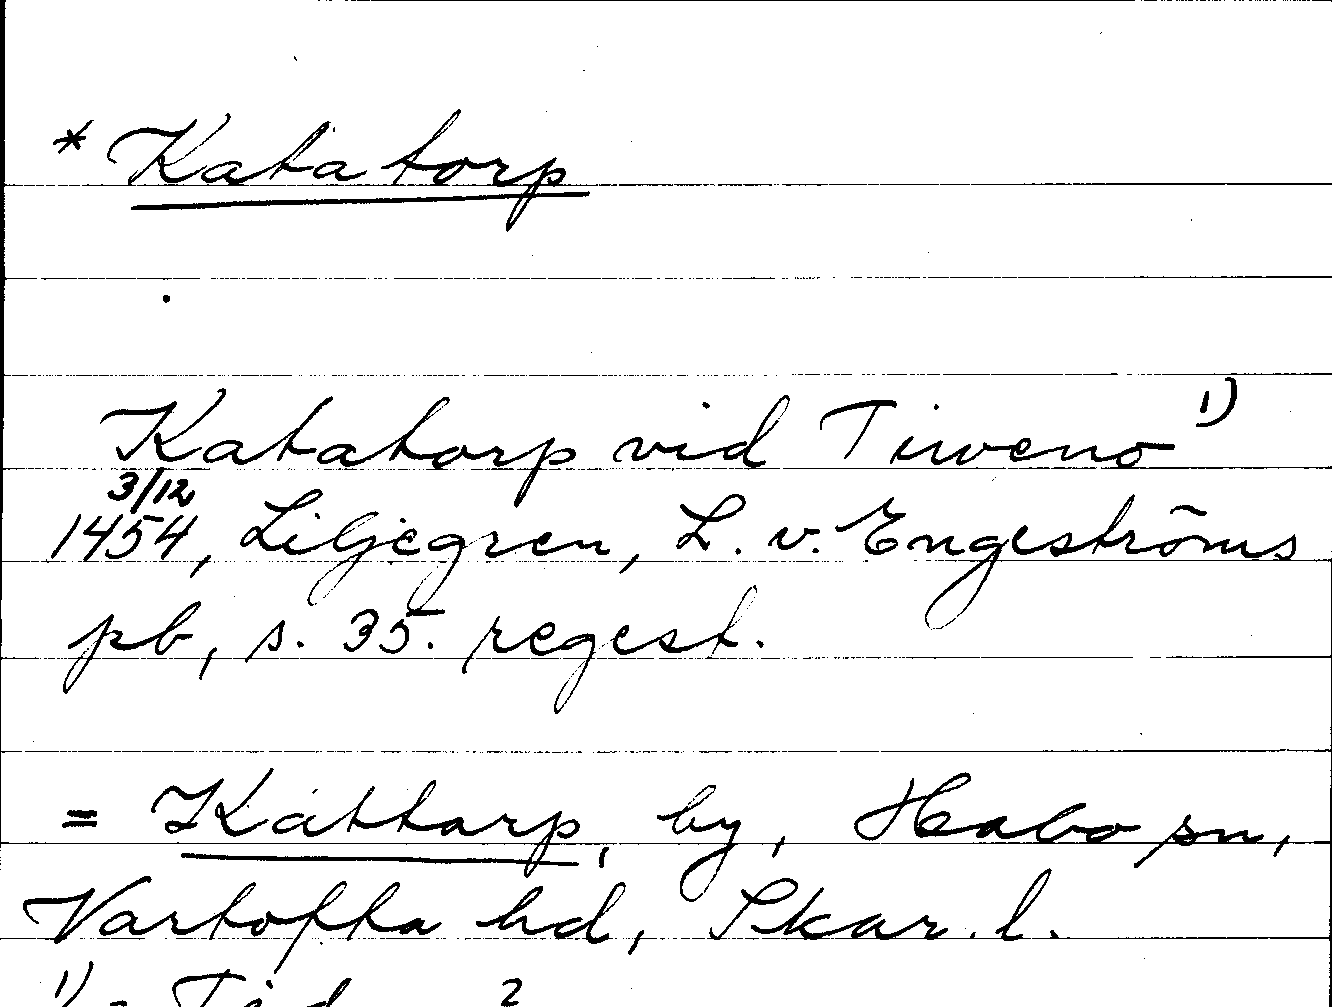 * Katatorp
Katatorp vid Tiweno 1)
3/12
1454, Liljegren, L. v. Engeströms
pb, s. 35. regest.
= Kättarp, by, Habo sn,
Vartofta hd, Skar. l.
1) = 2